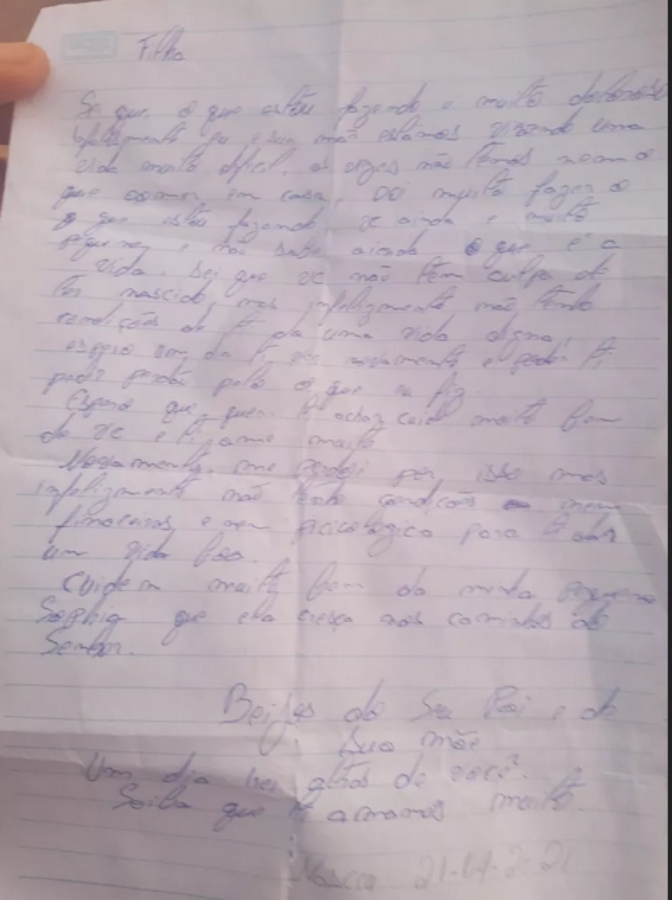 Filha
Sei que, o que estou fazendo é muito doloroso
infelizmente eu e sua mãe estamos vivendo uma
vida muito dificil, as vezes não temos nem o
que comer em casa, Doi muito fazer o
o que estou fazendo, vc ainda e muito
pequena e não sabe ainda o que é a
vida. Sei que vc não tem culpa de
ter nascido, mas infelizmente não tenho
condições de ti da uma vida digna,
espero um dia ti ver novamente e pedi ti
pedi perdão pelo o que eu fiz.
Espero que, quem ti achar cuide muito bem
de vc e ti ame muito
Novamente, me perdoi por isso mas
infelizmente não tenho condições nem
finaceiras e nem picicologica para ti dar
um vida boa.
Cuidem muito bem da minha pequena
Sophia que ela cresça nos caminhos do
Senhor.
Beijos do Seu Pai e da
Sua mãe
Um dia irei atras de você.
Saiba que ti amamos muito.
Nasceu 21-04-2021